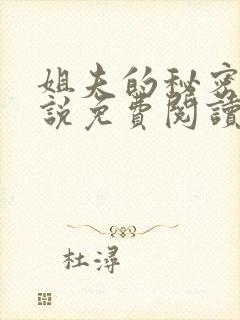 姐夫的秘密
説免費閱讀
杜潯